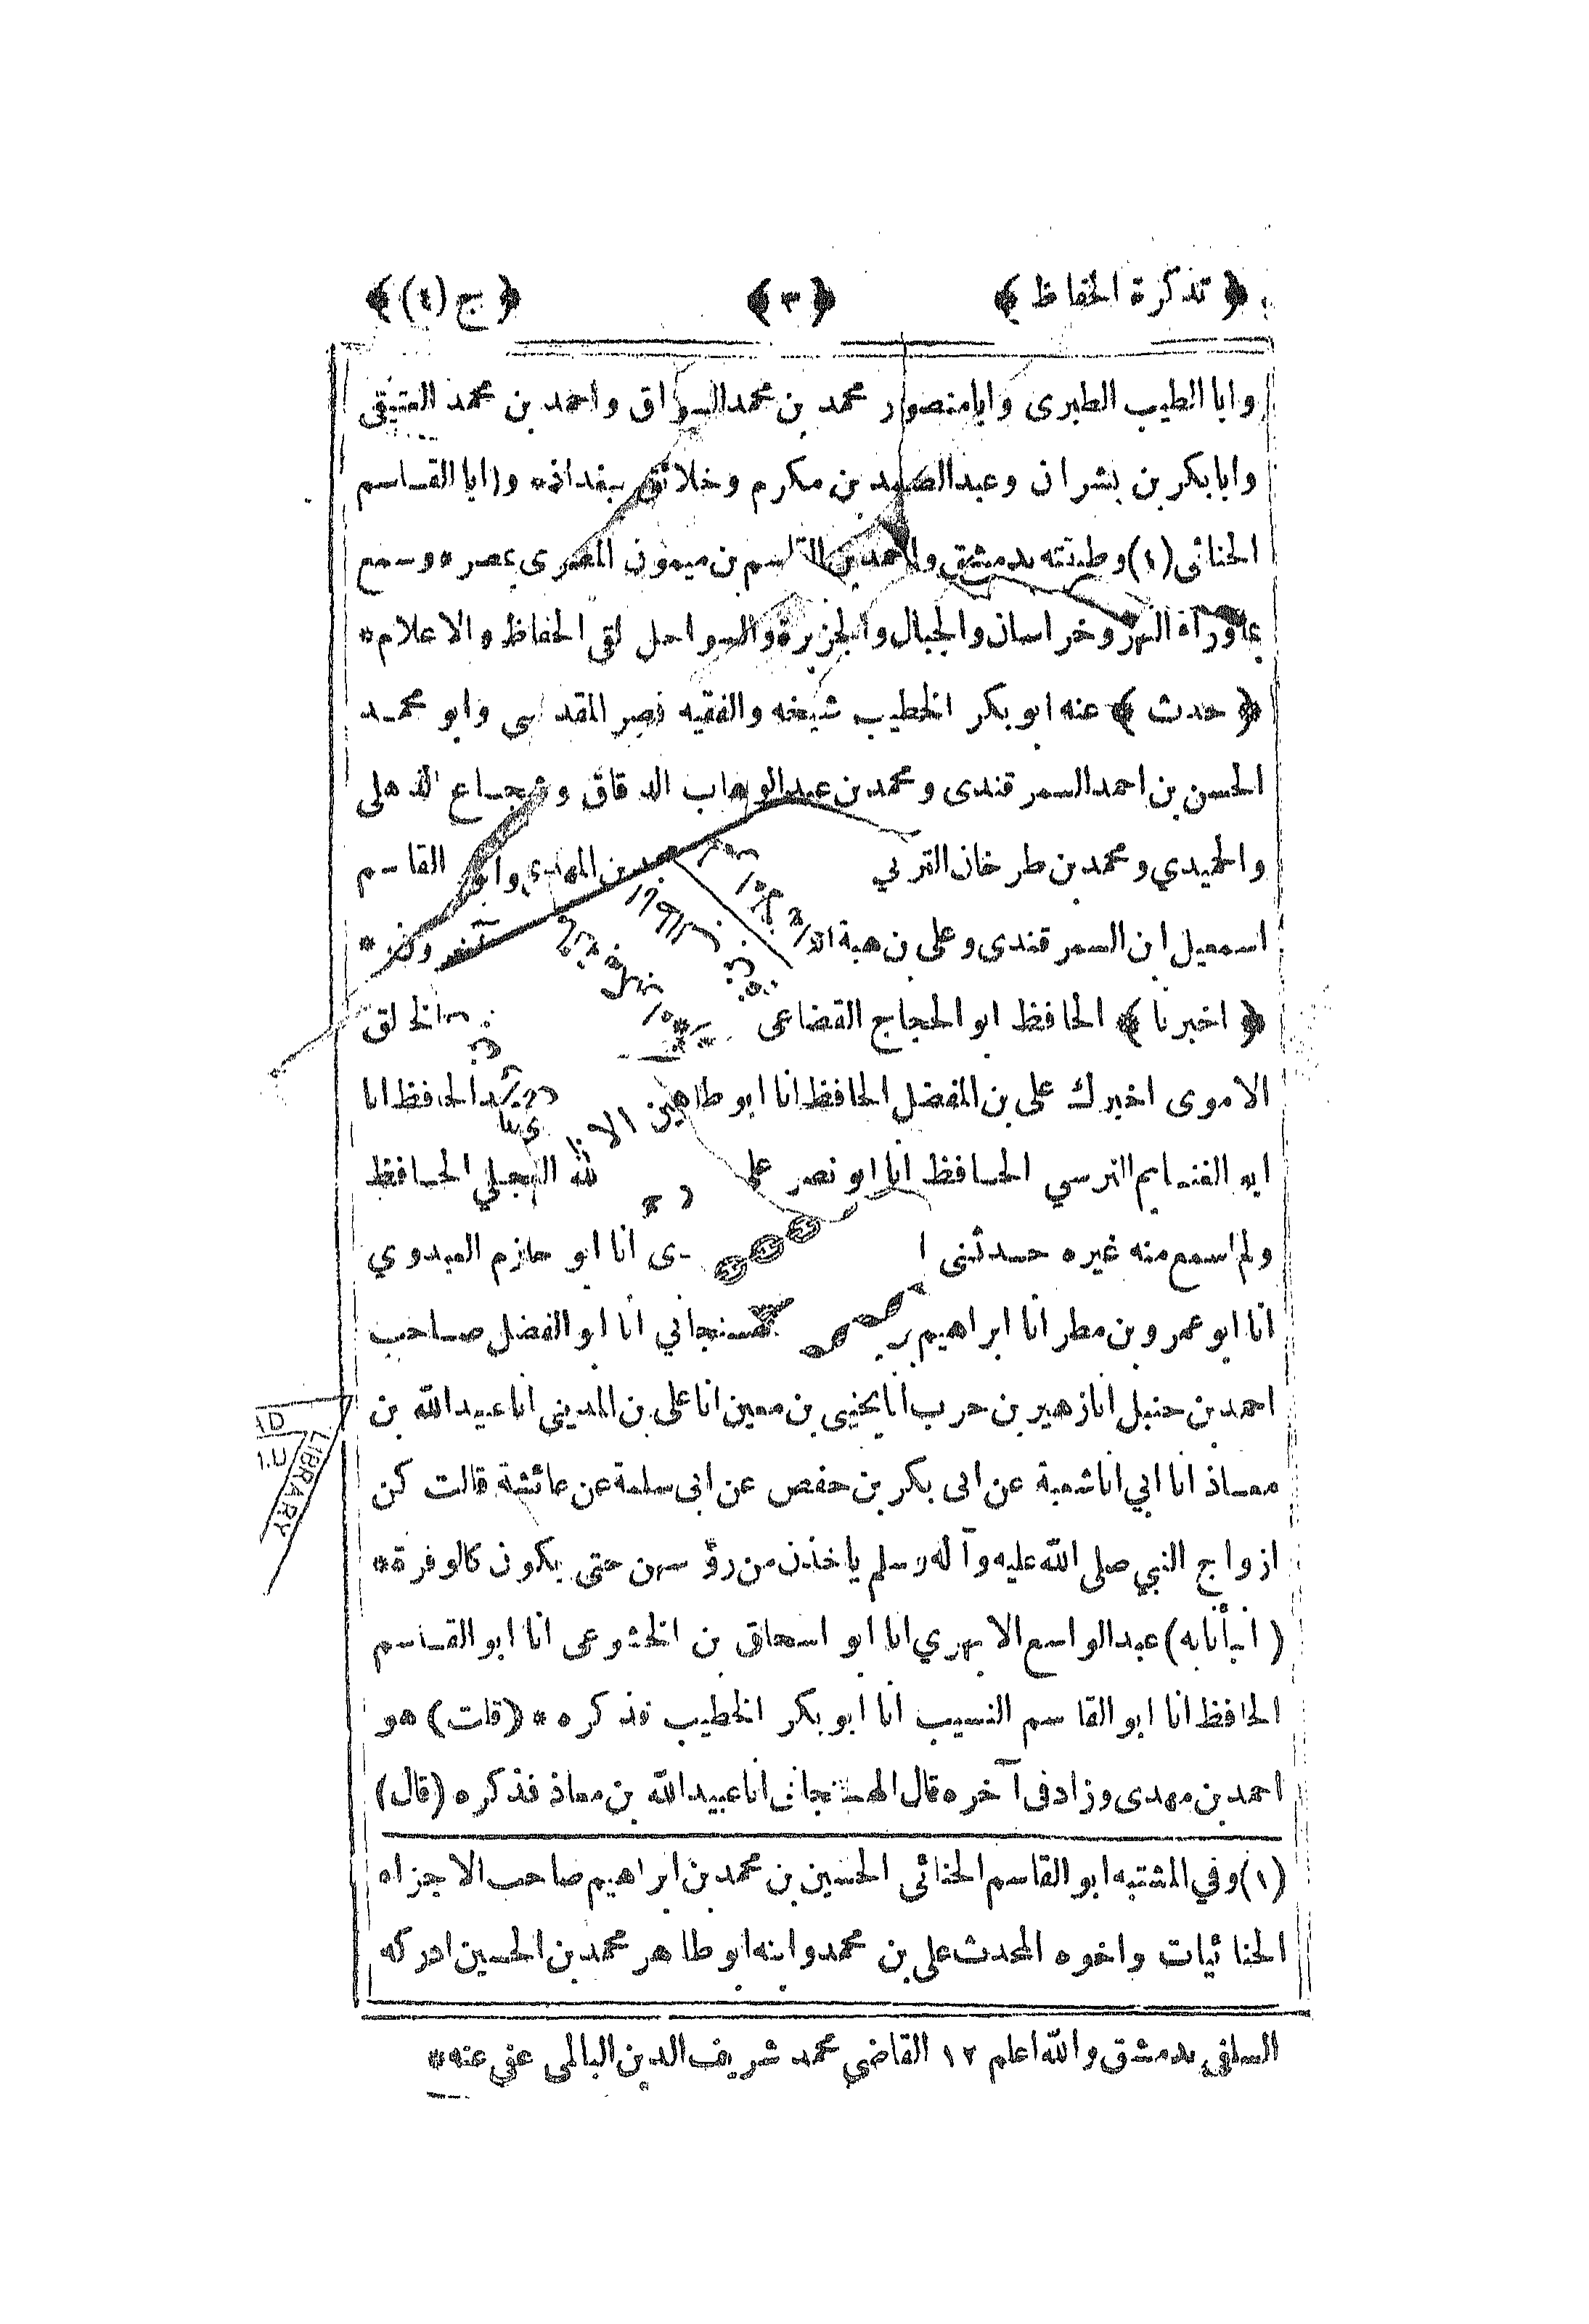 ﴿ تذكرة الحفاظ ﴾ ﴿ ٣ ﴾ ﴿ ج (٤) ﴾
وابا الطيب الطبرى وابا منصور محمد بن محمد السواق واحمد بن محمد العتيقى
وابا بكر بن بشران وعبد الصمد بن مكرم وخلائق ببغداذ* وابا القاسم
الحنائى (١) وطبقته بدمشق واحمد بن القاسم بن ميمون المصرى بمصر* وسمع
بماوراء النهر وخراسان والجبال والجزيرة والسواحل لقى الحفاظ والاعلام*
﴿ حدث ﴾ عنه ابو بكر الخطيب شيخه والفقيه نصر المقدسى وابو محمد
الحسن بن احمد السمرقندى ومحمد بن عبد الوهاب الدقاق وشجاع الذهلى
والحميدي ومحمد بن طرخان التركي بن المهدي وابو القاسم
اسمعيل ابن السمرقندى وعلى بن هبة الله آخرون*
﴿ اخبرنا ﴾ الحافظ ابو الحجاج القضاعى الخالق
الاموى اخبرك على بن المفضل الحافظ انا ابو طاهر الحافظ انا
ابو الغنائم النرسي الحافظ انا ابو نصر على الله العجلي الحافظ
ولم اسمع منه غيره حدثنى انا ابو حازم العبدوي
انا ابو عمرو بن مطر انا ابراهيم الهسنجاني انا ابو الفضل صاحب
احمد بن حنبل انا زهير بن حرب انا يحيى بن معين انا على بن المديني انا عبيد الله بن
معاذ انا ابي انا شعبة عن ابى بكر بن حفص عن ابى سلمة عن عائشة قالت كن
ازواج النبي صلى الله عليه وآله وسلم ياخذن من رؤسهن حتى يكون كالوفرة*
(انبأنا به) عبد الواسع الابهري انا ابو اسحاق بن الخشوعى انا ابو القاسم
الحافظ انا ابو القاسم النسيب انا ابو بكر الخطيب فذكره* (قلت) هو
احمد بن مهدى وزاد فى آخره قال الهسنجانى انا عبيد الله بن معاذ فذكره (قال)
(١) وفي المشتبه ابو القاسم الحنائى الحسين بن محمد بن ابراهيم صاحب الاجزاء
الحنائيات واخوه المحدث على بن محمد وابنه ابو طاهر محمد بن الحسين ادركه
السلفي بدمشق والله اعلم ١٢ القاضي محمد شريف الدين البالمى عفى عنه*
LIBRARY